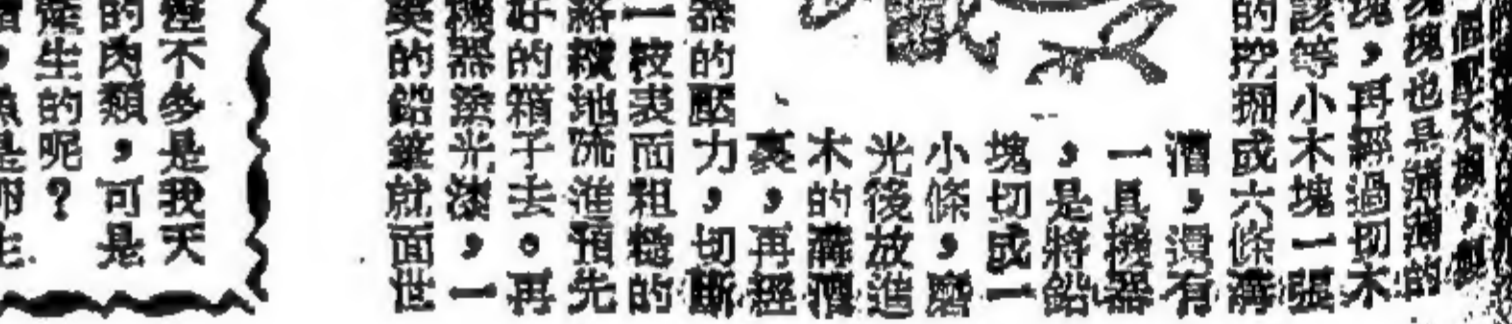 個壓木機，劊
塊也是薄薄的
塊，再經過切木
該等小木塊一張
的挖掘或六條溝
漕，還有
一具機器
，是將鉛
塊切成一
小條，磨
光後放進
木的溝漕
裏，再經
器的壓力，切斷
一枝表面粗糙的
路線地流進預先
好的箱子去。再
機器染光漆，一
美的鉛筆就面世
不多是我天
的肉類，可是
產生的呢？
魚是卵生